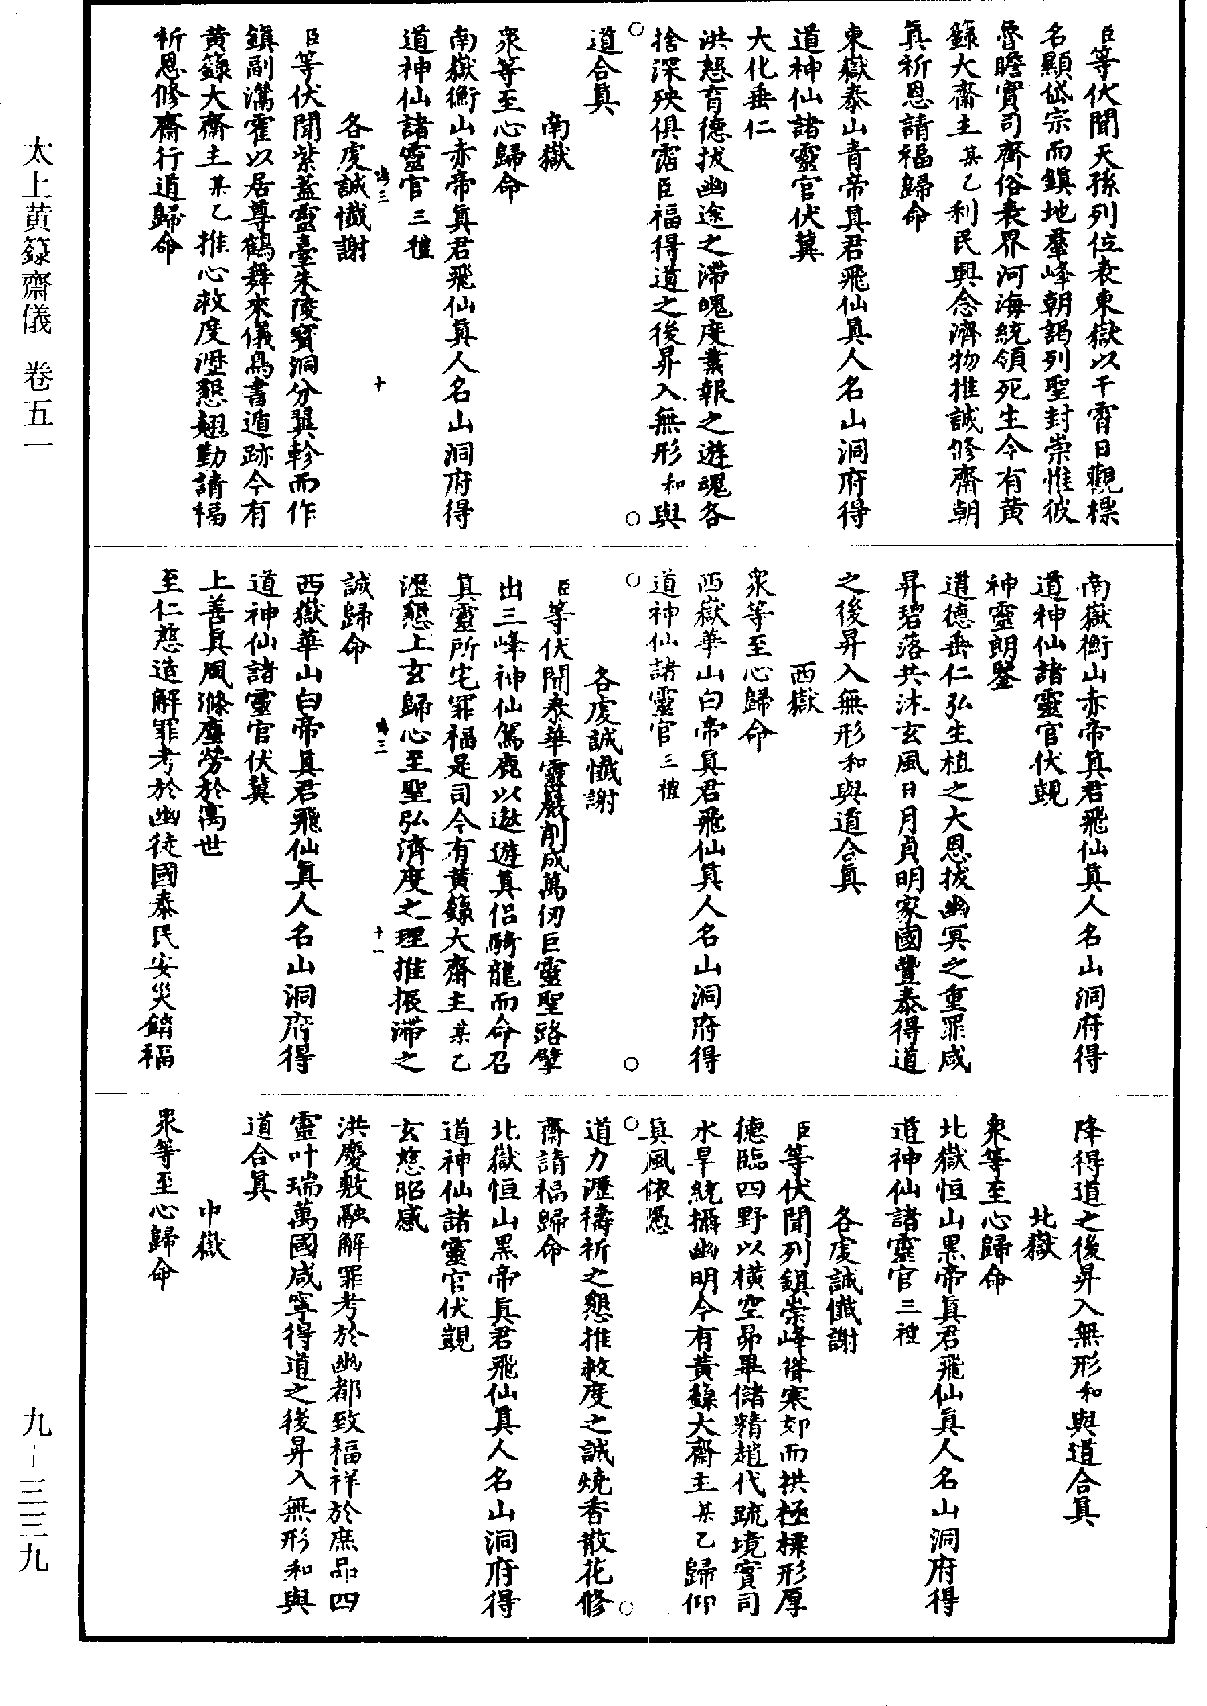 太上黃籙齋儀 卷五一
九-三三九
臣等伏聞天孫列位表東嶽以干霄日觀標
名顯岱宗而鎮地羣峰朝謁列聖封崇惟彼
魯瞻實司齊俗表界河海統領死生今有黃
籙大齋主某乙利民興念濟物推誠修齋朝
真祈恩請福歸命
東嶽泰山青帝真君飛仙真人名山洞府得
道神仙諸靈官伏冀
大化垂仁
洪慈育德拔幽途之滯魄度業報之遊魂各
捨深殃俱霑巨福得道之後昇入無形和與
道合真
南嶽
衆等至心歸命
南嶽衡山赤帝真君飛仙真人名山洞府得
道神仙諸靈官三禮
各虔誠懺謝
十
臣等伏聞紫蓋靈臺朱陵寶洞分翼軫而作
鎮副灊霍以居尊鶴舞來儀鳥書遁跡今有
黃籙大齋主某乙推心救度瀝懇翹勤請福
祈恩修齋行道歸命
南嶽衡山赤帝真君飛仙真人名山洞府得
道神仙諸靈官伏覬
神靈朗鑒
道德垂仁弘生植之大恩拔幽冥之重罪咸
昇碧落共沐玄風日月貞明家國豐泰得道
之後昇入無形和與道合真
西嶽
衆等至心歸命
西嶽華山白帝真君飛仙真人名山洞府得
道神仙諸靈官三禮
各虔誠懺謝
臣等伏聞泰華靈巖削成萬仞巨靈聖路擘
出三峰神仙駕鹿以遨遊真侶騎龍而命召
真靈所宅罪福是司今有黃籙大齋主某乙
瀝懇上玄歸心至聖弘濟度之理推振滯之
十一
誠歸命
西嶽華山白帝真君飛仙真人名山洞府得
道神仙諸靈官伏冀
上善真風滌塵勞於萬世
至仁慈造解罪考於幽徒國泰民安災銷福
降得道之後昇入無形和與道合真
北嶽
衆等至心歸命
北嶽恒山黑帝真君飛仙真人名山洞府得
道神仙諸靈官三禮
各虔誠懺謝
臣等伏聞列鎮崇峰峙寒郊而拱極標形厚
德臨四野以橫空昴畢儲精趙代疏境實司
水旱統攝幽明今有黃籙大齋主某乙歸仰
真風依憑
道力瀝禱祈之懇推救度之誠燒香散花修
齋請福歸命
北嶽恒山黑帝真君飛仙真人名山洞府得
道神仙諸靈官伏覬
玄慈昭感
洪慶敷融解罪考於幽都致福祥於庶品四
靈叶瑞萬國咸寧得道之後昇入無形和與
道合真
中嶽
衆等至心歸命